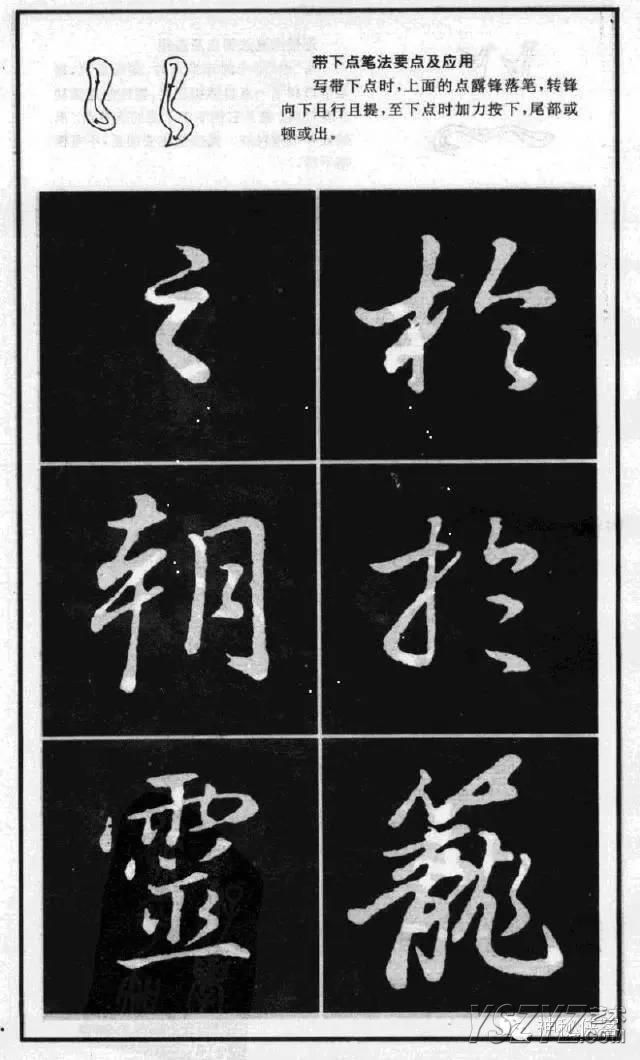 带下点笔法要点及应用
写带下点时，上面的点露锋落笔，转锋
向下且行且提，至下点时加力按下，尾部或
顿或出。
於
於
籠
之
朝
靈